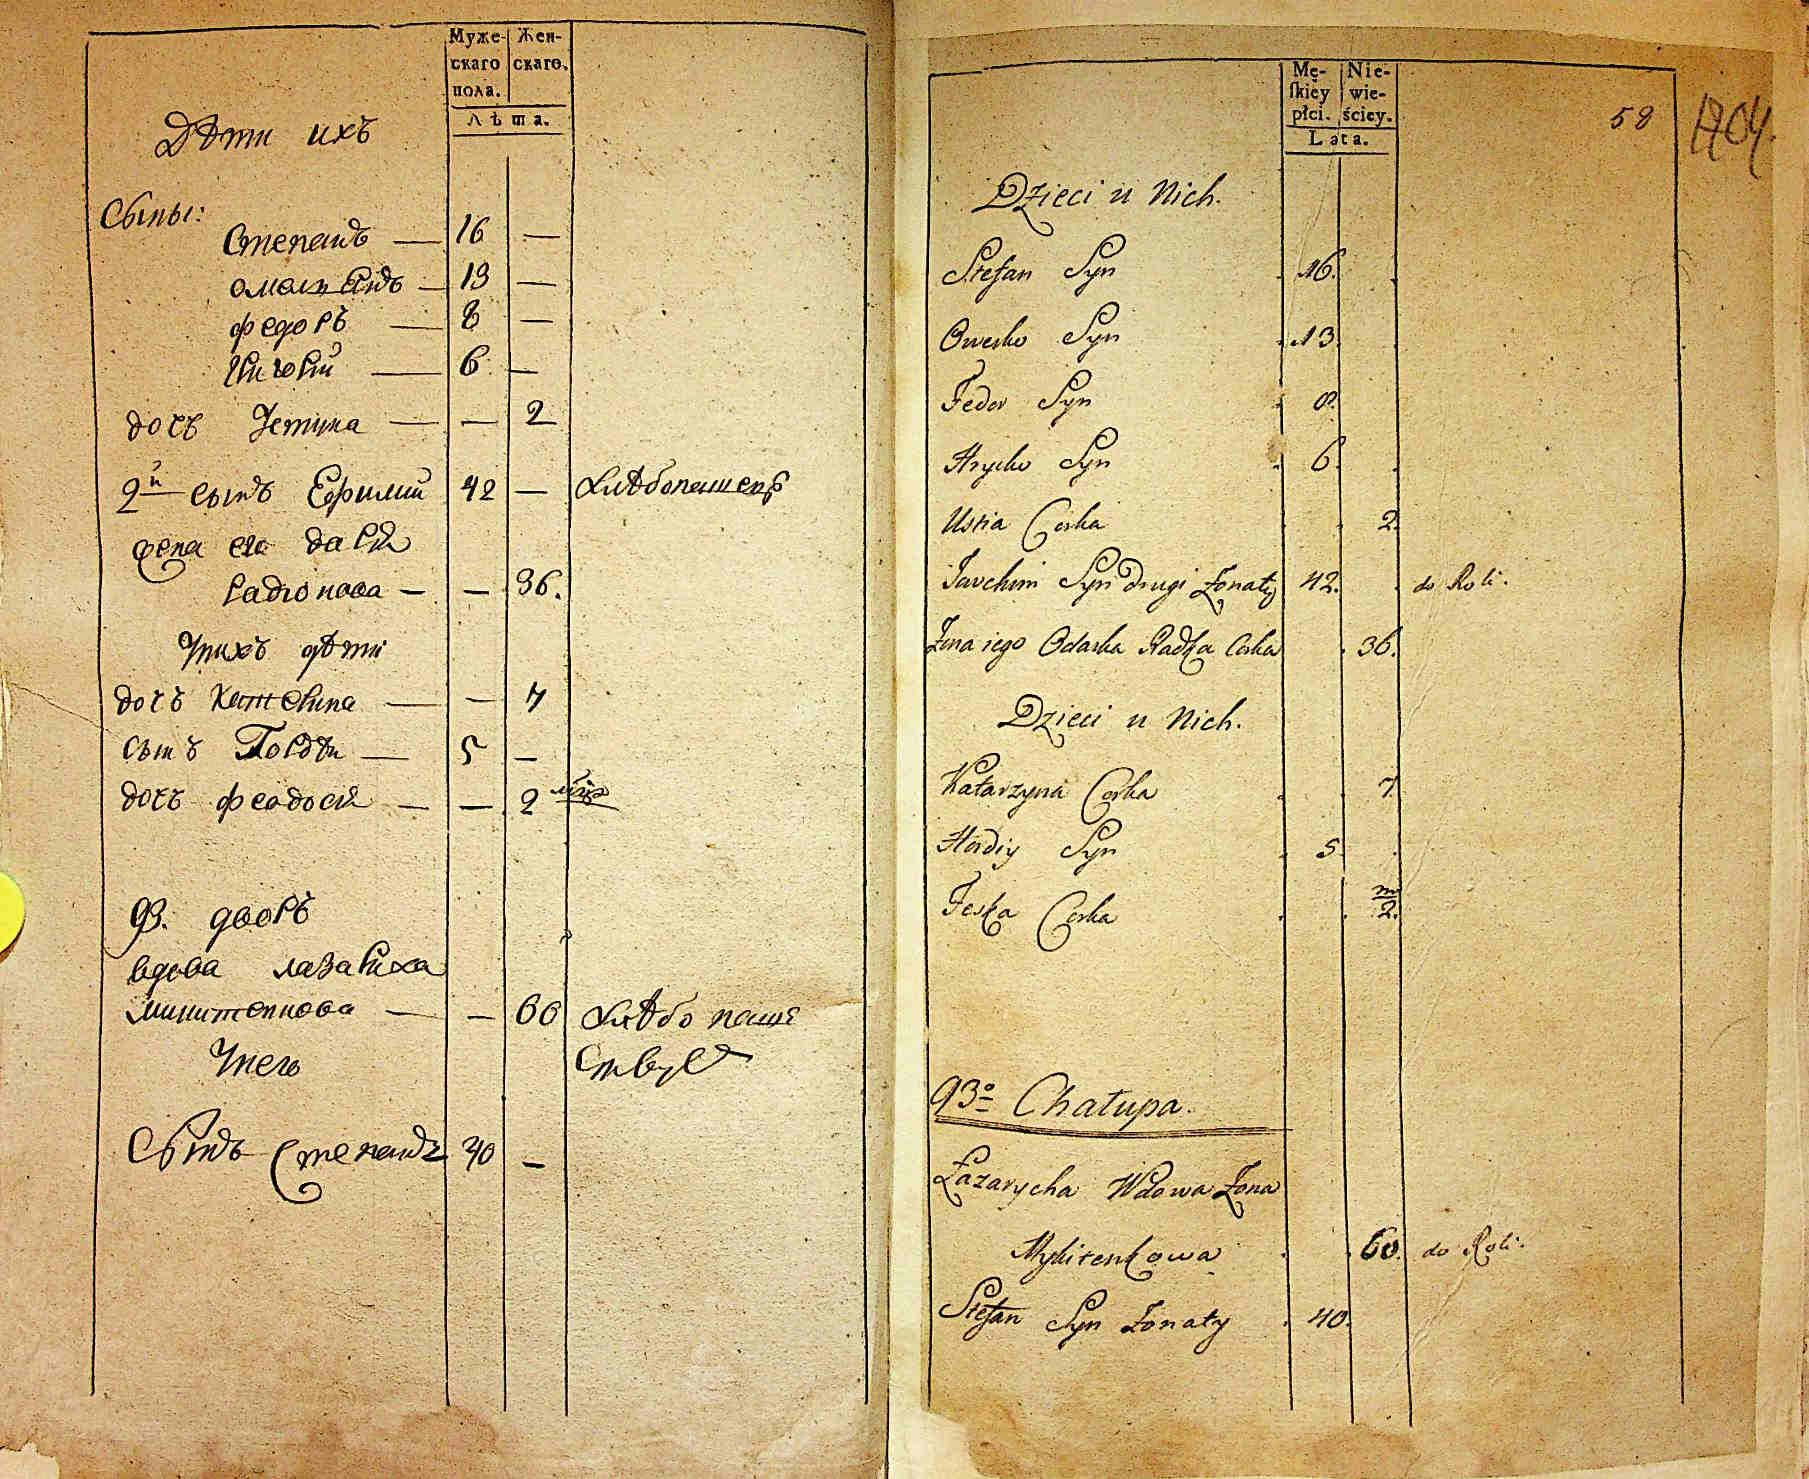 Муже- Жен-
скаго скаго.
пола.
Лѣта.
Дѣти ихъ
Сыны:
Степанъ — 16 —
13 —
федоръ — 8 —
Григорий — 6 —
дочъ Устина — — 2
2й сынъ Ефимий 42 — хлѣбопашецъ
жена его дария
Радионова — — 36.
У нихъ дѣти
дочъ Катерина — — 7
сынъ Гордѣи — 5 —
дочъ феодосия — — 2
93. дворъ
вдова лазариха
микитенкова — — 60 хлѣбо паше
У нея ствуетъ
Сынъ Степанъ 40 —
Mę- Nie-
skiey wie-
płci. ściey.
Lata.
58 1704.
Dzieci u Nich.
Stefan Syn 16.
Owerko Syn 13.
Fedor Syn 8.
Hryćko Syn 6.
Ustia Corka 2.
Jawchim Syn drugi Żonaty 42. do Roli.
Żona iego Odarka Radka Corka 36.
Dzieci u Nich.
Katarzyna Corka 7.
Hordiy Syn 5.
Feśka Corka m 2.
93o Chałupa.
Łazarycha Wdowa Żona
Mykitenkowa 60. do Roli.
Stefan Syn Żonaty 40.